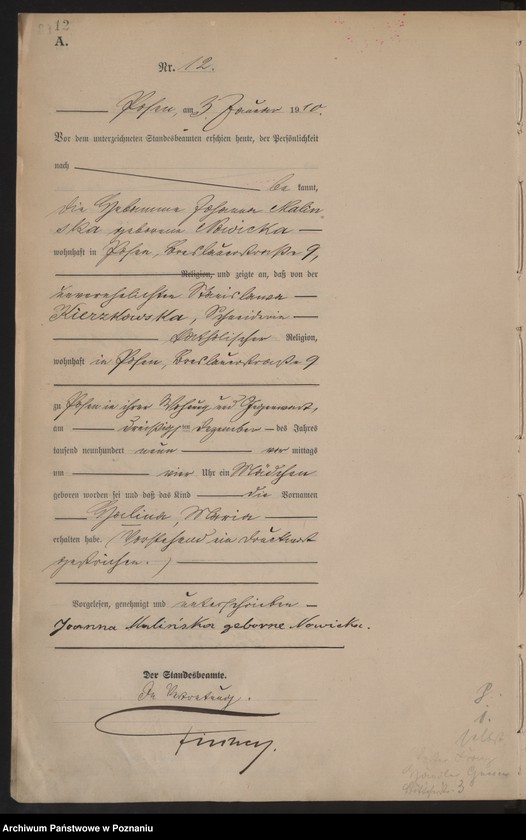 12
A.
Nr. 12.
Posen, am 3. Januar 1910.
Vor dem unterzeichneten Standesbeamten erschien heute, der Persönlichkeit
nach
be kannt,
die Hebamme Johanna Malin-
ska geborene Nowicka
wohnhaft in Posen, Breslauerstraße 9,
Religion, und zeigte an, daß von der
unverehelichten Stanislawa
Kierzkowska, Schneiderin
katholischer Religion,
wohnhaft in Posen, Breslauerstraße 9
zu Posen in ihrer Wohnung und Gegenwart,
am dreißigsten Dezember des Jahres
tausend neunhundert neun vor mittags
um vier Uhr ein Mädchen
geboren worden sei und daß das Kind die Vornamen
Halina, Maria
erhalten habe. (Vorstehend ein Druckwort
gestrichen.)
Vorgelesen, genehmigt und unterschrieben
Joanna Malińska geborne Nowicka.
Der Standesbeamte.
In Vertretung.
Archiwum Państwowe w Poznaniu